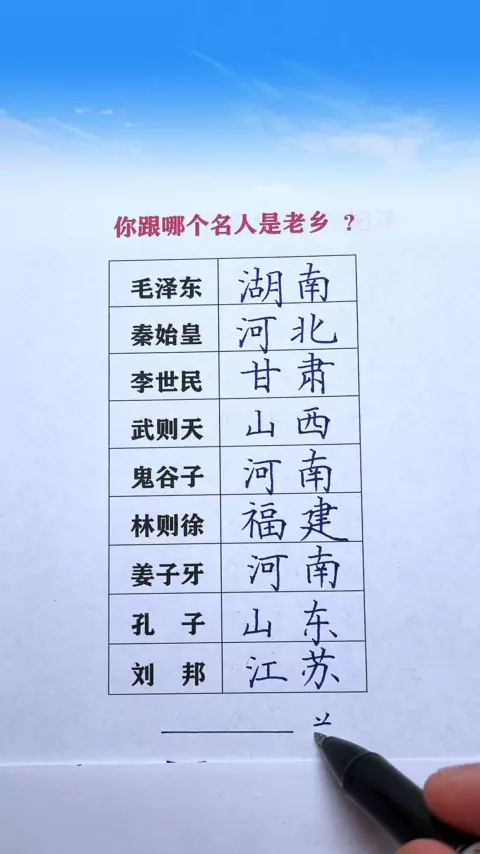 你跟哪个名人是老乡 ?
毛泽东 湖南
秦始皇 河北
李世民 甘肃
武则天 山西
鬼谷子 河南
林则徐 福建
姜子牙 河南
孔 子 山东
刘 邦 江苏